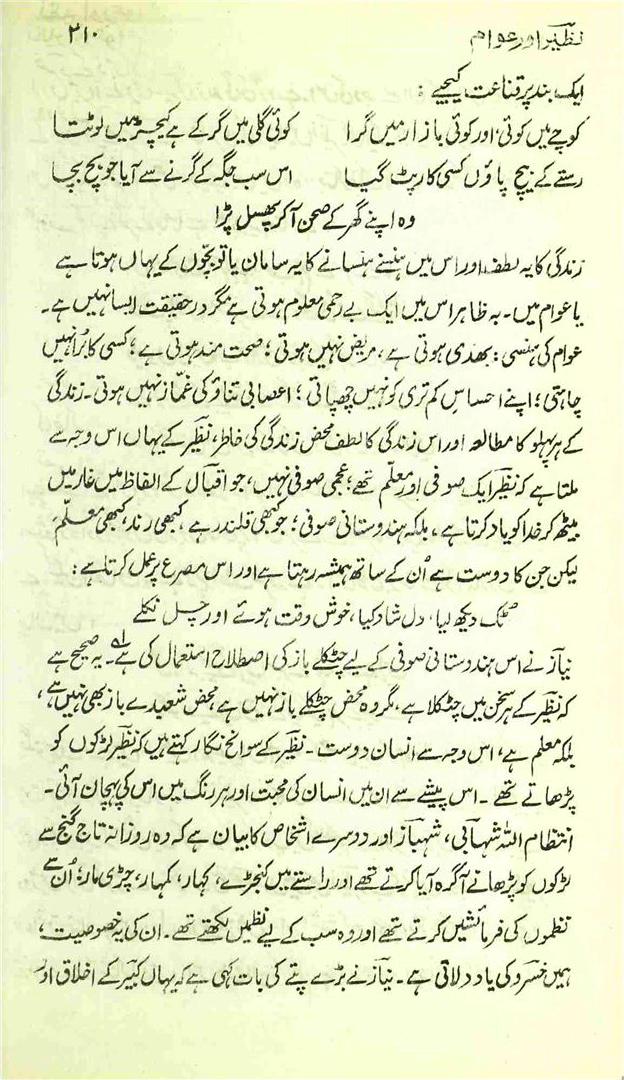 نظیر اور عوام ۳۱۰
ایک بند پر قناعت کیجیے :
کوچے میں کوئی اور کوئی بازار میں گرا کوئی گلی میں گر کے ہے کیچڑ میں لوٹتا
رستے کے بیچ پاؤں کسی کا رپٹ گیا اس سب جگہ کے گرنے سے آیا جو بچ بچا
وہ اپنے گھر کے صحن آ کر پھسل پڑا
زندگی کا یہ لطف اور اس میں ہنسنے ہنسانے کا یہ سامان یا تو بچّوں کے یہاں ہوتا ہے
یا عوام میں۔ بہ ظاہر اس میں ایک بے رحمی معلوم ہوتی ہے مگر درحقیقت ایسا نہیں ہے۔
عوام کی ہنسی : بھدی ہوتی ہے، مریض نہیں ہوتی؛ صحت مند ہوتی ہے؛ کسی کا بُرا نہیں
چاہتی؛ اپنے احساسِ کم تری کو نہیں چھپاتی؛ اعصابی تناؤ کی غمّاز نہیں ہوتی۔ زندگی
کے ہر پہلو کا مطالعہ اور اس زندگی کا لطف محض زندگی کی خاطر، نظیر کے یہاں اس وجہ سے
ملتا ہے کہ نظیر ایک صوفی اور معلّم تھے؛ عجمی صوفی نہیں، جو اقبال کے الفاظ میں غار میں
بیٹھ کر خدا کو یاد کرتا ہے، بلکہ ہندوستانی صوفی؛ جو کبھی قلندر ہے، کبھی رند، کبھی معلّم،
لیکن جن کا دوست ہے اُن کے ساتھ ہمیشہ رہتا ہے اور اس مصرع پر عمل کرتا ہے :
ٹک دیکھ لیا، دل شاد کیا، خوش وقت ہوئے اور چل نکلے
نیاز نے اس ہندوستانی صوفی کے لیے چٹکلے باز کی اصطلاح استعمال کی ہے۔ یہ صحیح ہے
کہ نظیر کے ہر سخن میں چٹکلا ہے، مگر وہ محض چٹکلے باز نہیں ہے، محض شعبدے باز بھی نہیں ہے،
بلکہ معلم ہے، اس وجہ سے انسان دوست۔ نظیر کے سوانح نگار کہتے ہیں کہ نظیر لڑکوں کو
پڑھاتے تھے۔ اس پیشے سے ان میں انسان کی محبّت اور ہر رنگ میں اس کی پہچان آئی۔
انتظام اللہ شہابی، شہباز اور دوسرے اشخاص کا بیان ہے کہ وہ روزانہ تاج گنج سے
لڑکوں کو پڑھانے آگرہ آیا کرتے تھے اور راستے میں کنجڑے، کہار، کمہار، چڑی مار؛ اُن سے
نظموں کی فرمائشیں کرتے تھے اور وہ سب کے لیے نظمیں لکھتے تھے۔ ان کی یہ خصوصیت،
ہمیں خسرو کی یاد دلاتی ہے۔ نیاز نے بڑے پتے کی بات کہی ہے کہ یہاں کبیر کے اخلاق اور